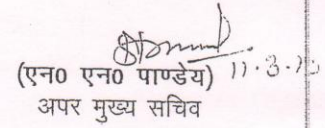 (एन0 एन0 पाण्डेय) 11.3.
अपर मुख्य सचिव